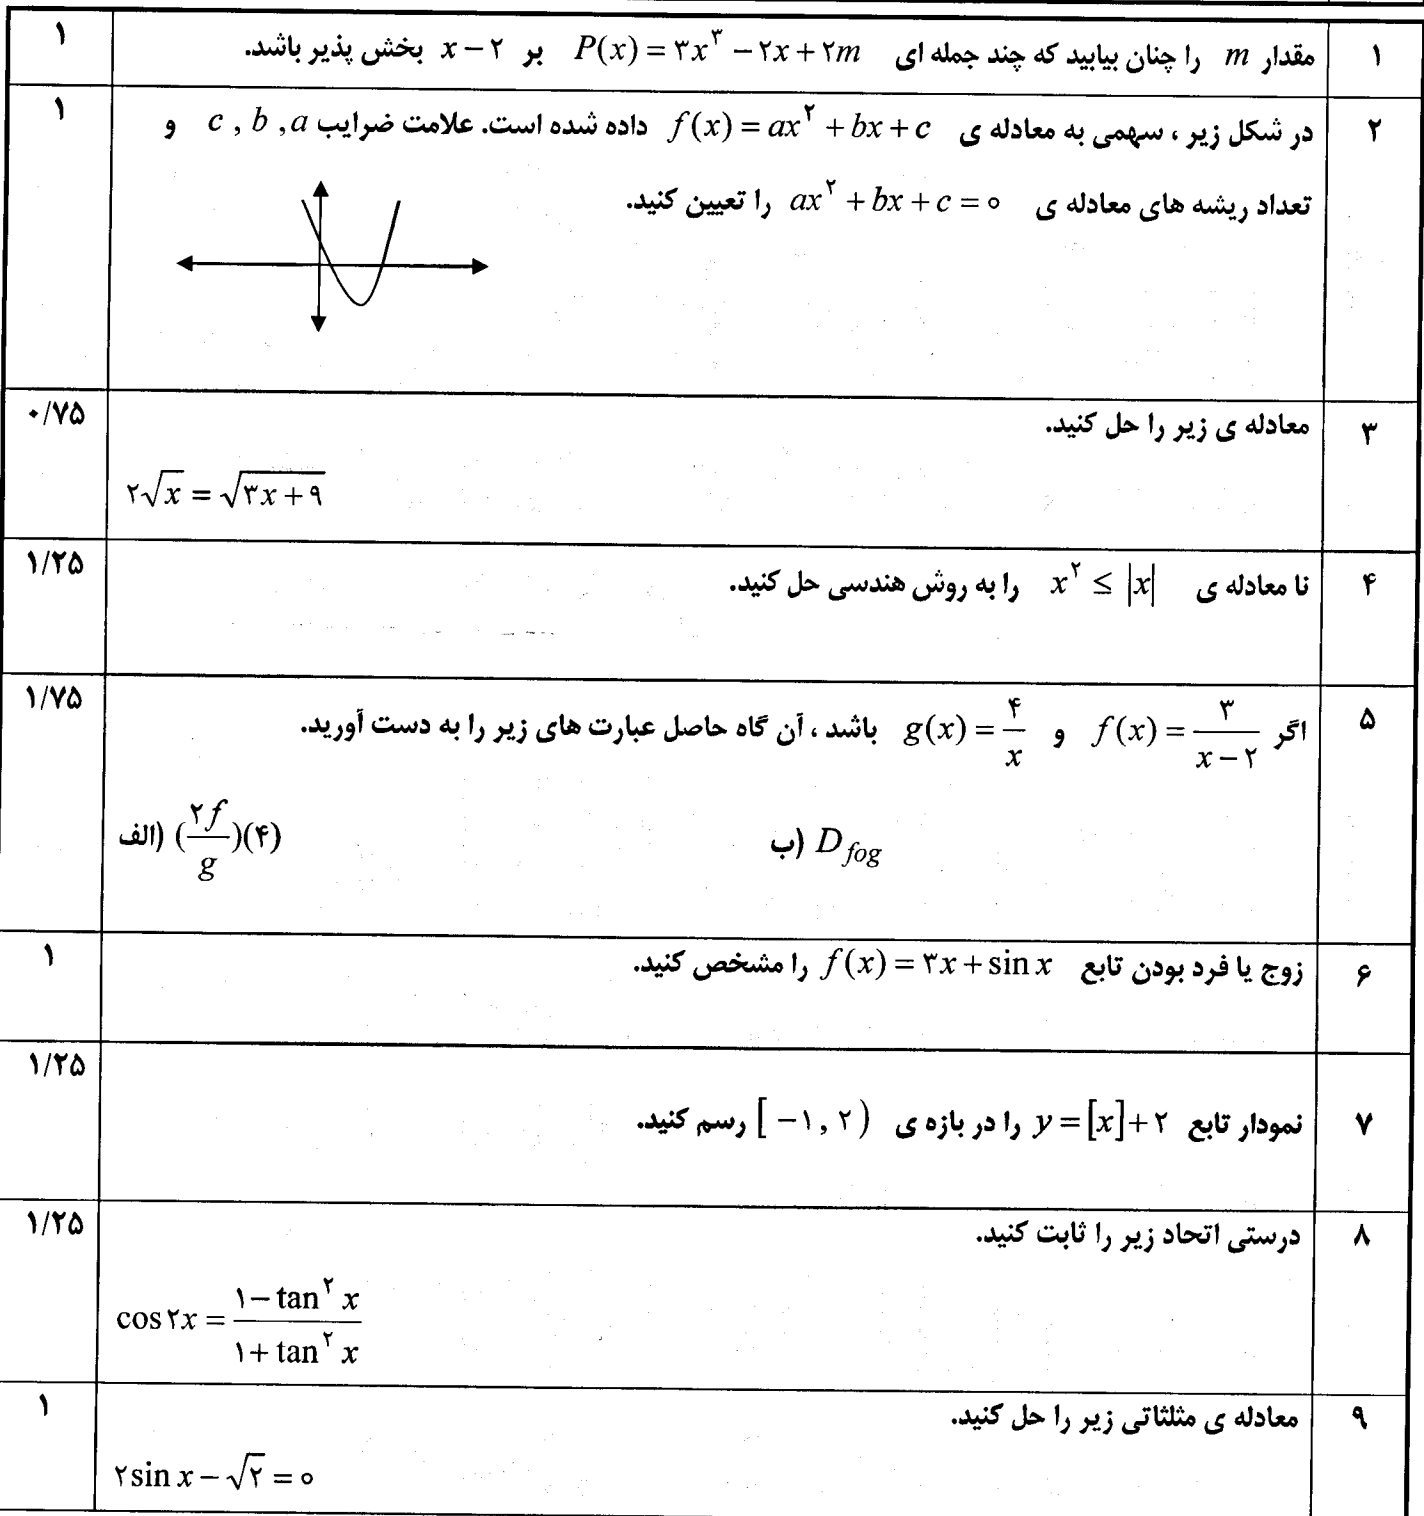 ۱ مقدار m را چنان بیابید که چند جمله ای P(x) = ۳x^۳ − ۲x + ۲m بر x − ۲ بخش پذیر باشد. ۱
۲ در شکل زیر ، سهمی به معادله ی f(x) = ax^۲ + bx + c داده شده است. علامت ضرایب a, b , c و ۱
تعداد ریشه های معادله ی ax^۲ + bx + c = ۰ را تعیین کنید.
۳ معادله ی زیر را حل کنید. ۰/۷۵
۲√x = √(۳x + ۹)
۴ نا معادله ی x^۲ ≤ |x| را به روش هندسی حل کنید. ۱/۲۵
۵ اگر f(x) = ۳/(x − ۲) و g(x) = ۴/x باشد ، آن گاه حاصل عبارت های زیر را به دست آورید. ۱/۷۵
الف) (۲f/g)(۴) ب) D_fog
۶ زوج یا فرد بودن تابع f(x) = ۳x + sin x را مشخص کنید. ۱
۷ نمودار تابع y = [x] + ۲ را در بازه ی [−۱, ۲) رسم کنید. ۱/۲۵
۸ درستی اتحاد زیر را ثابت کنید. ۱/۲۵
cos ۲x = (۱ − tan^۲ x)/(۱ + tan^۲ x)
۹ معادله ی مثلثاتی زیر را حل کنید. ۱
۲ sin x − √۲ = ۰